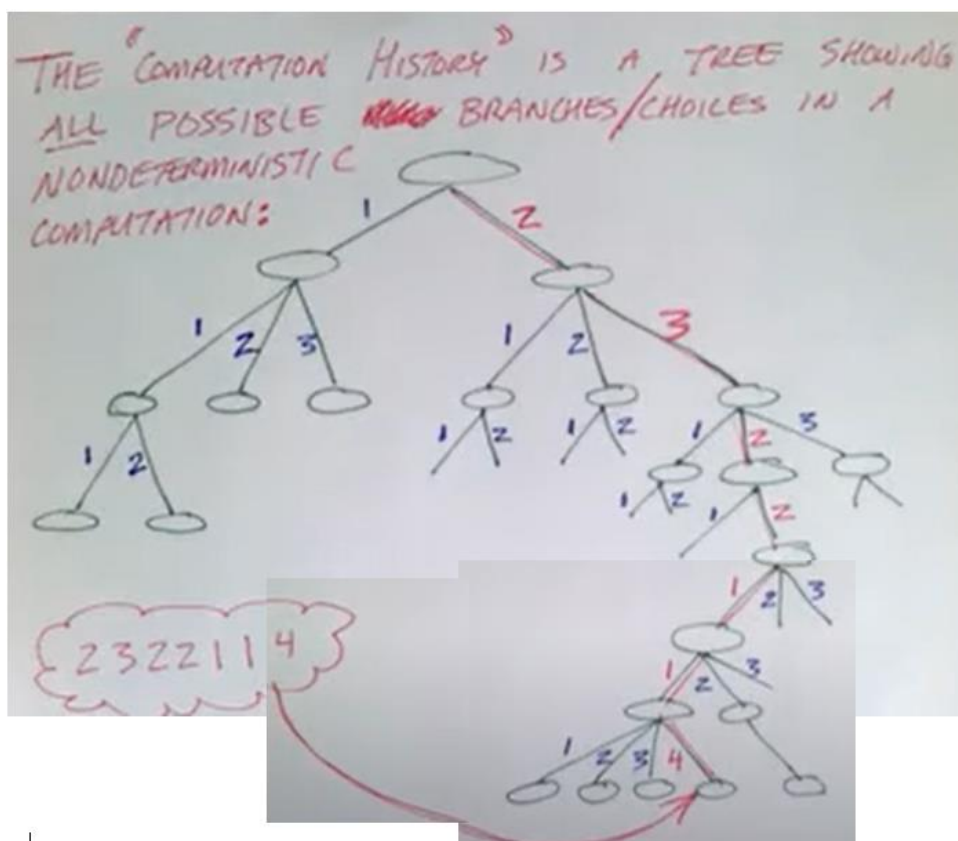 THE "COMPUTATION HISTORY" IS A TREE SHOWING
ALL POSSIBLE BRANCHES/CHOICES IN A
NONDETERMINISTIC
COMPUTATION:
1 2
1 2 3 1 2 3
1 2 1 2 1 2 1 2 3
1 2 1 2
1 2 3
2322114
1 2 3
1 2 3 4